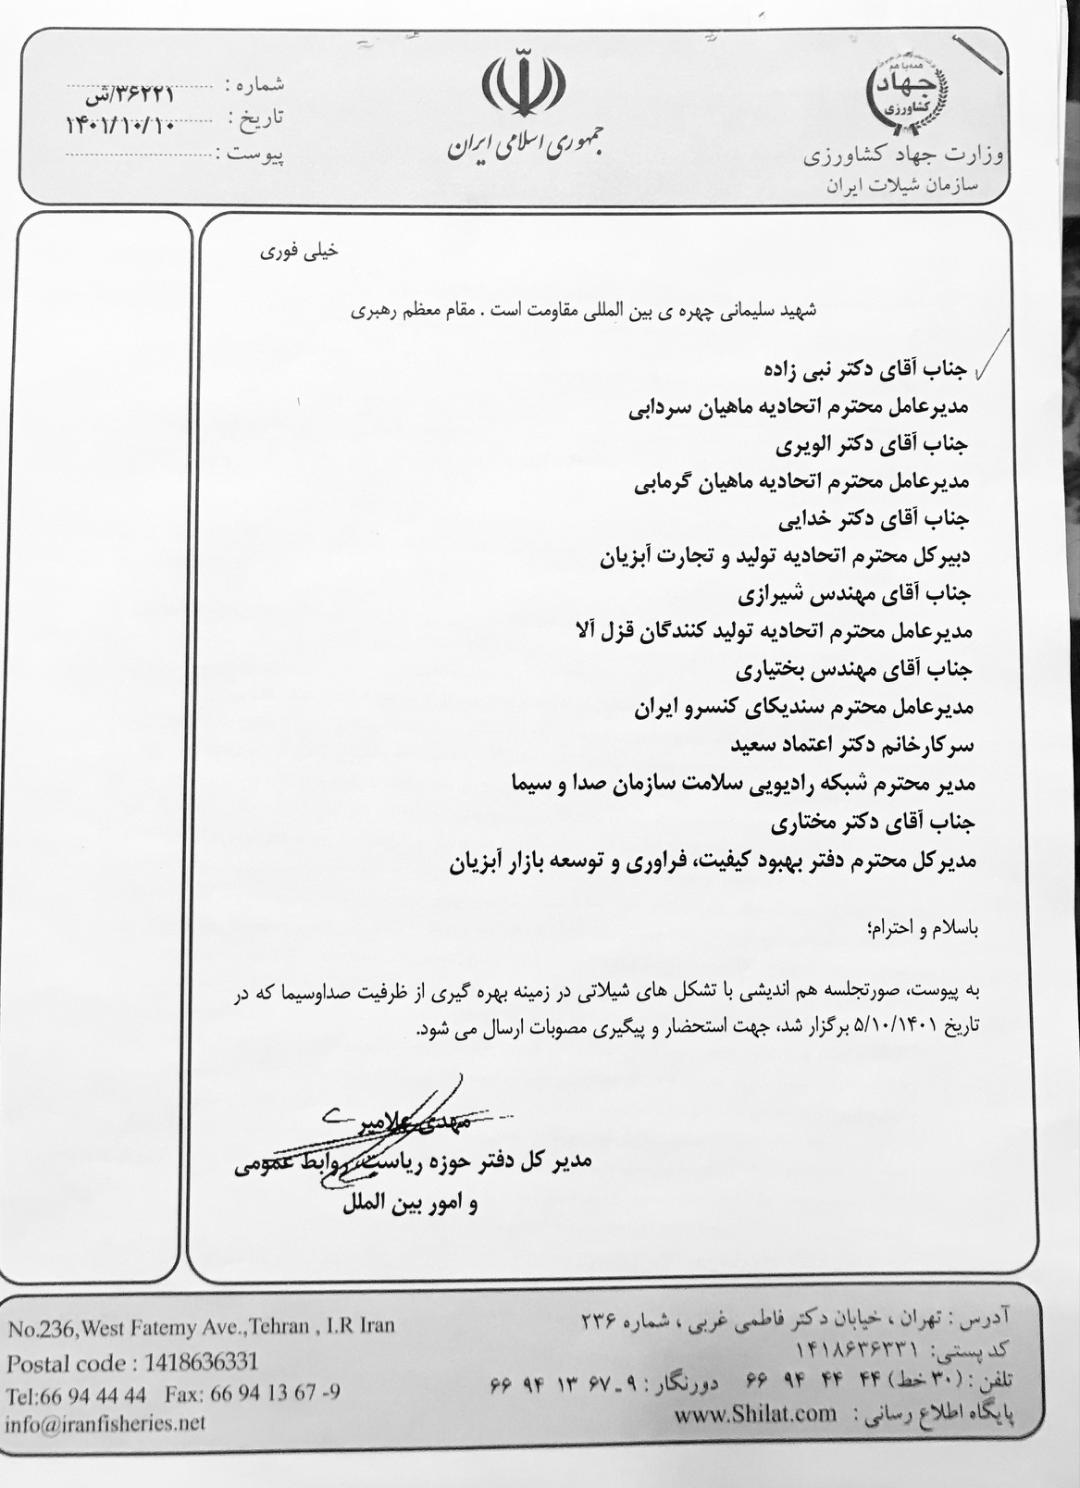 همه با هم
جهاد
کشاورزی
وزارت جهاد کشاورزی
سازمان شیلات ایران
جمهوری اسلامی ایران
شماره : ۳۶۲۲۱/ش
تاریخ : ۱۴۰۱/۱۰/۱۰
پیوست :
خیلی فوری
شهید سلیمانی چهره ی بین المللی مقاومت است . مقام معظم رهبری
جناب آقای دکتر نبی زاده
مدیرعامل محترم اتحادیه ماهیان سردابی
جناب آقای دکتر الویری
مدیرعامل محترم اتحادیه ماهیان گرمابی
جناب آقای دکتر خدایی
دبیرکل محترم اتحادیه تولید و تجارت آبزیان
جناب آقای مهندس شیرازی
مدیرعامل محترم اتحادیه تولید کنندگان قزل آلا
جناب آقای مهندس بختیاری
مدیرعامل محترم سندیکای کنسرو ایران
سرکارخانم دکتر اعتماد سعید
مدیر محترم شبکه رادیویی سلامت سازمان صدا و سیما
جناب آقای دکتر مختاری
مدیرکل محترم دفتر بهبود کیفیت، فراوری و توسعه بازار آبزیان
باسلام و احترام؛
به پیوست، صورتجلسه هم اندیشی با تشکل های شیلاتی در زمینه بهره گیری از ظرفیت صداوسیما که در
تاریخ ۵/۱۰/۱۴۰۱ برگزار شد، جهت استحضار و پیگیری مصوبات ارسال می شود.
مهدی
مدیر کل دفتر حوزه ریاست، روابط عمومی
و امور بین الملل
آدرس : تهران ، خیابان دکتر فاطمی غربی ، شماره ۲۳۶
کد پستی: ۱۴۱۸۶۳۶۳۳۱
تلفن : (۳۰ خط) ۴۴ ۴۴ ۹۴ ۶۶ دورنگار : ۹ـ۶۷ ۱۳ ۹۴ ۶۶
پایگاه اطلاع رسانی : www.Shilat.com
No.236,West Fatemy Ave.,Tehran , I.R Iran
Postal code : 1418636331
Tel:66 94 44 44 Fax: 66 94 13 67 -9
info@iranfisheries.net